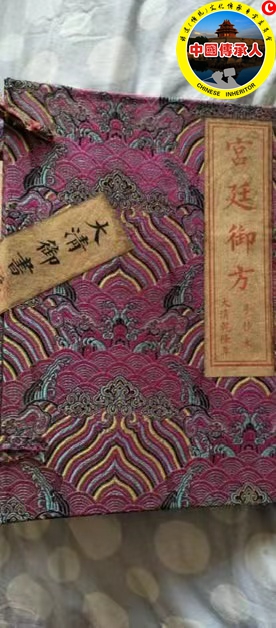 中國傳承人
CHINESE INHERITOR
宮廷御方
手抄本
大清乾隆年
大清御書